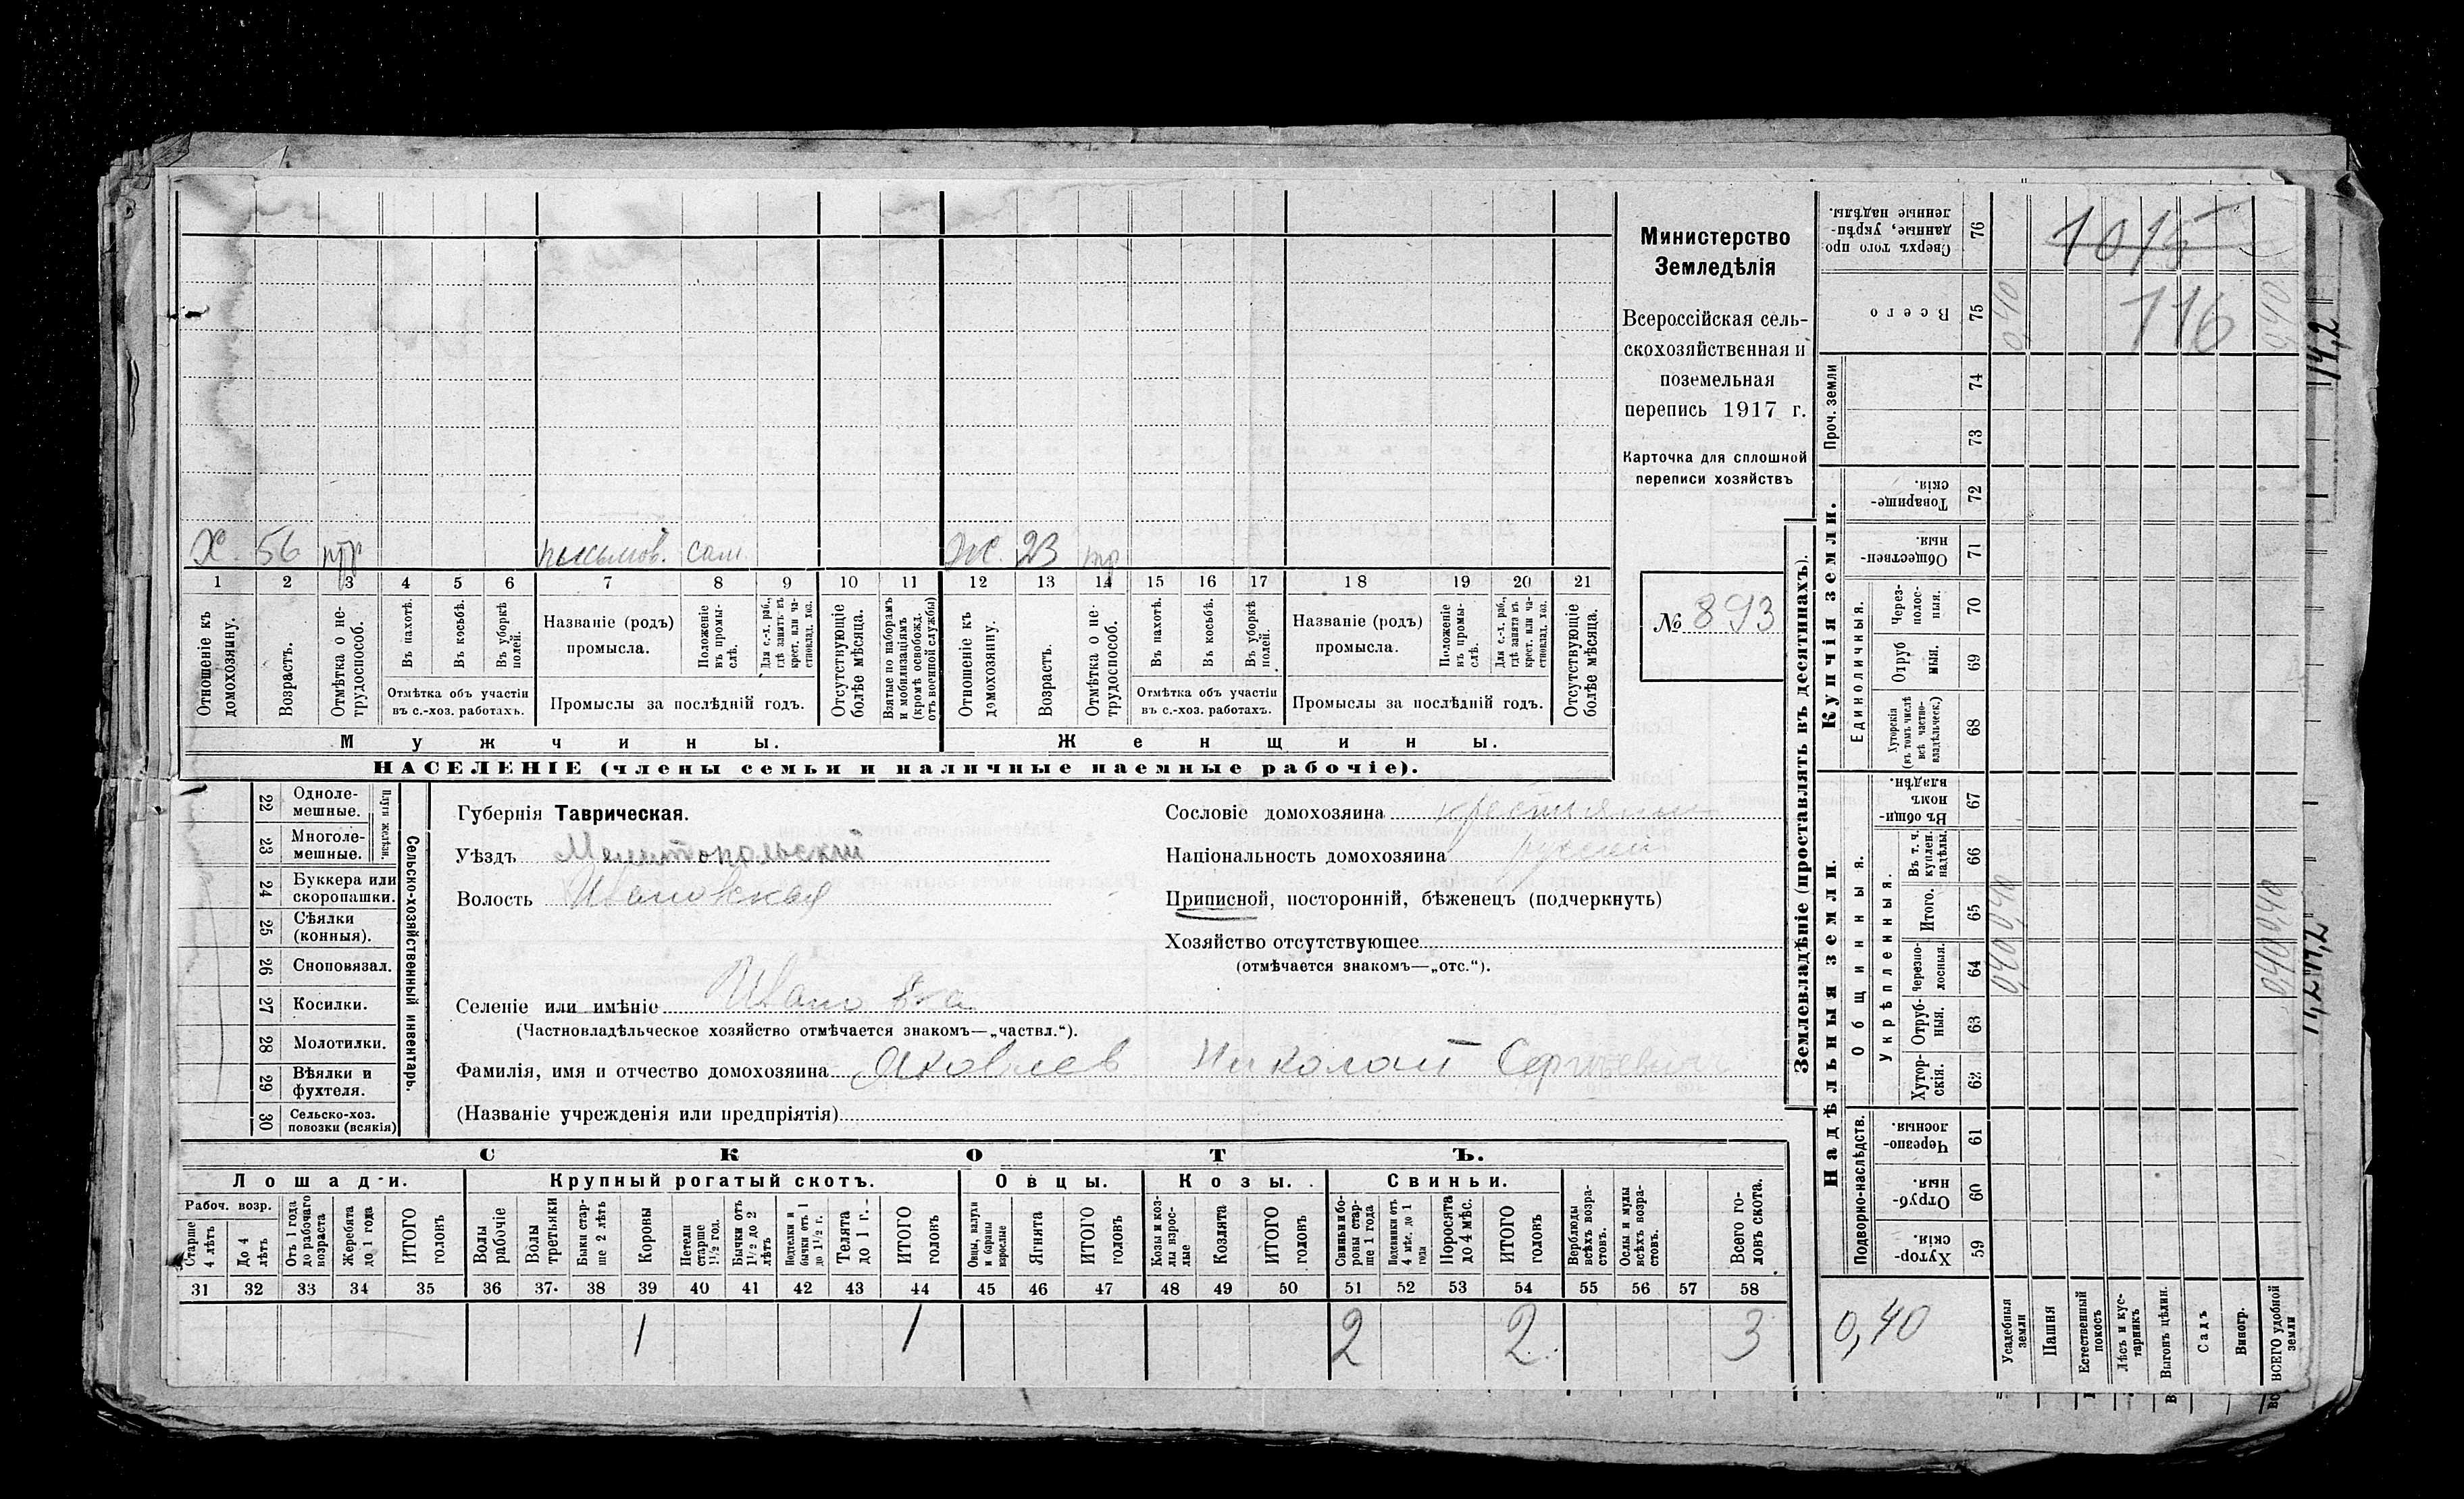 Министерство
Земледѣлія
Всероссійская сель-
скохозяйственная и
поземельная
перепись 1917 г.
Карточка для сплошной
переписи хозяйствъ
№ 893
Х. 56 тр сам. Ж. 23 тр
1 2 3 4 5 6 7 8 9 10 11 12 13 14 15 16 17 18 19 20 21
Отношеніе къ домохозяину.
Возрастъ.
Отмѣтка о не-трудоспособ.
Въ пахотѣ.
Въ косьбѣ.
Въ уборкѣ полей.
Отмѣтка объ участіи
въ с.-хоз. работахъ.
Названіе (родъ)
промысла.
Положеніе въ промы-слѣ.
Для с.-х. раб., гдѣ занятъ въ крест. или ча-стновлад. хоз.
Промыслы за послѣдній годъ.
Отсутствующіе болѣе мѣсяца.
Взятые по наборамъ и мобилизаціямъ (кромѣ освобожд. отъ военной службы)
Отношеніе къ домохозяину.
Возрастъ.
Отмѣтка о не-трудоспособ.
Въ пахотѣ.
Въ косьбѣ.
Въ уборкѣ полей.
Отмѣтка объ участіи
въ с.-хоз. работахъ.
Названіе (родъ)
промысла.
Положеніе въ промы-слѣ.
Для с.-х. раб., гдѣ занята въ крест. или ча-стновлад. хоз.
Промыслы за послѣдній годъ.
Отсутствующіе болѣе мѣсяца.
Мужчины. Женщины.
НАСЕЛЕНІЕ (члены семьи и наличные наемные рабочіе).
22 Одноле-мешные.
23 Многоле-мешные.
Плуги желѣзн.
24 Буккера или скоропашки.
25 Сѣялки (конныя).
26 Сноповязал.
27 Косилки.
28 Молотилки.
29 Вѣялки и фухтеля.
30 Сельско-хоз. повозки (всякія)
Сельско-хозяйственный инвентарь.
Губернія Таврическая.
Уѣздъ Мелитопольскій
Волость Ивановская
Селеніе или имѣніе Ивановка
(Частновладѣльческое хозяйство отмѣчается знакомъ—„частвл.“).
Фамилія, имя и отчество домохозяина Яковлев Николай Сергѣевич
(Названіе учрежденія или предпріятія)
Сословіе домохозяина крестьянин
Національность домохозяина русский
Приписной, посторонній, бѣженец (подчеркнуть)
Хозяйство отсутствующее
(отмѣчается знакомъ—„отс.“).
СКОТЪ.
Лошади. Крупный рогатый скотъ. Овцы. Козы. Свиньи.
Рабоч. возр.
Старше 4 лѣтъ
До 4 лѣтъ
Отъ 1 года до рабочаго возраста
Жеребята до 1 года
ИТОГО головъ
Волы рабочіе
Волы третьяки
Быки стар-ше 2 лѣтъ
Коровы
Нетели старше 1½ год.
Бычки отъ 1½ до 2 лѣтъ
Подтелки и бычки отъ 1 до 1½ г.
Телята до 1 г.
ИТОГО головъ
Овцы, валухи и бараны взрослые
Ягнята
ИТОГО головъ
Козы и коз-лы взрос-лые
Козлята
ИТОГО головъ
Свиньи и бо-ровы стар-ше 1 года
Подсвинки отъ 4 мѣс. до 1 года
Поросята до 4 мѣс.
ИТОГО головъ
Верблюды всѣхъ возра-стовъ.
Ослы и мулы всѣхъ возра-стовъ.
Всего го-ловъ скота.
31 32 33 34 35 36 37 38 39 40 41 42 43 44 45 46 47 48 49 50 51 52 53 54 55 56 57 58
1 1 2 2 3
Землевладѣніе (проставлять въ десятинахъ).
Купчія земли.
Надѣльныя земли.
Сверхъ того про-данные, укрѣп-ленные надѣлы. 76
Всего 75
Проч. земли 74 73
Товарище-скія. 72
Обществен-ныя. 71
Единоличныя.
Через-полос-ныя. 70
Отруб-ныя. 69
Хуторскія (въ томъ числѣ всѣ частно-владѣльческ.) 68
Въ общи-номъ владѣн. 67
Общинныя.
Укрѣпленныя.
Въ т. ч. куплен. надѣлы. 66
Итого. 65
Черезпо-лосныя. 64
Отруб-ныя. 63
Хутор-скія. 62
Подворно-наслѣдств.
Черезпо-лосныя. 61
Отруб-ныя. 60
Хутор-скія. 59
0,40
Усадебныя земли
Пашня
Естественный покосъ
Лѣсъ и кус-тарникъ
Выгонъ цѣлин.
Садъ
Виногр.
ВСЕГО удобной земли
1015
716
040
0,40
0,40
0,40
0,40
0,40
14,2
14,2